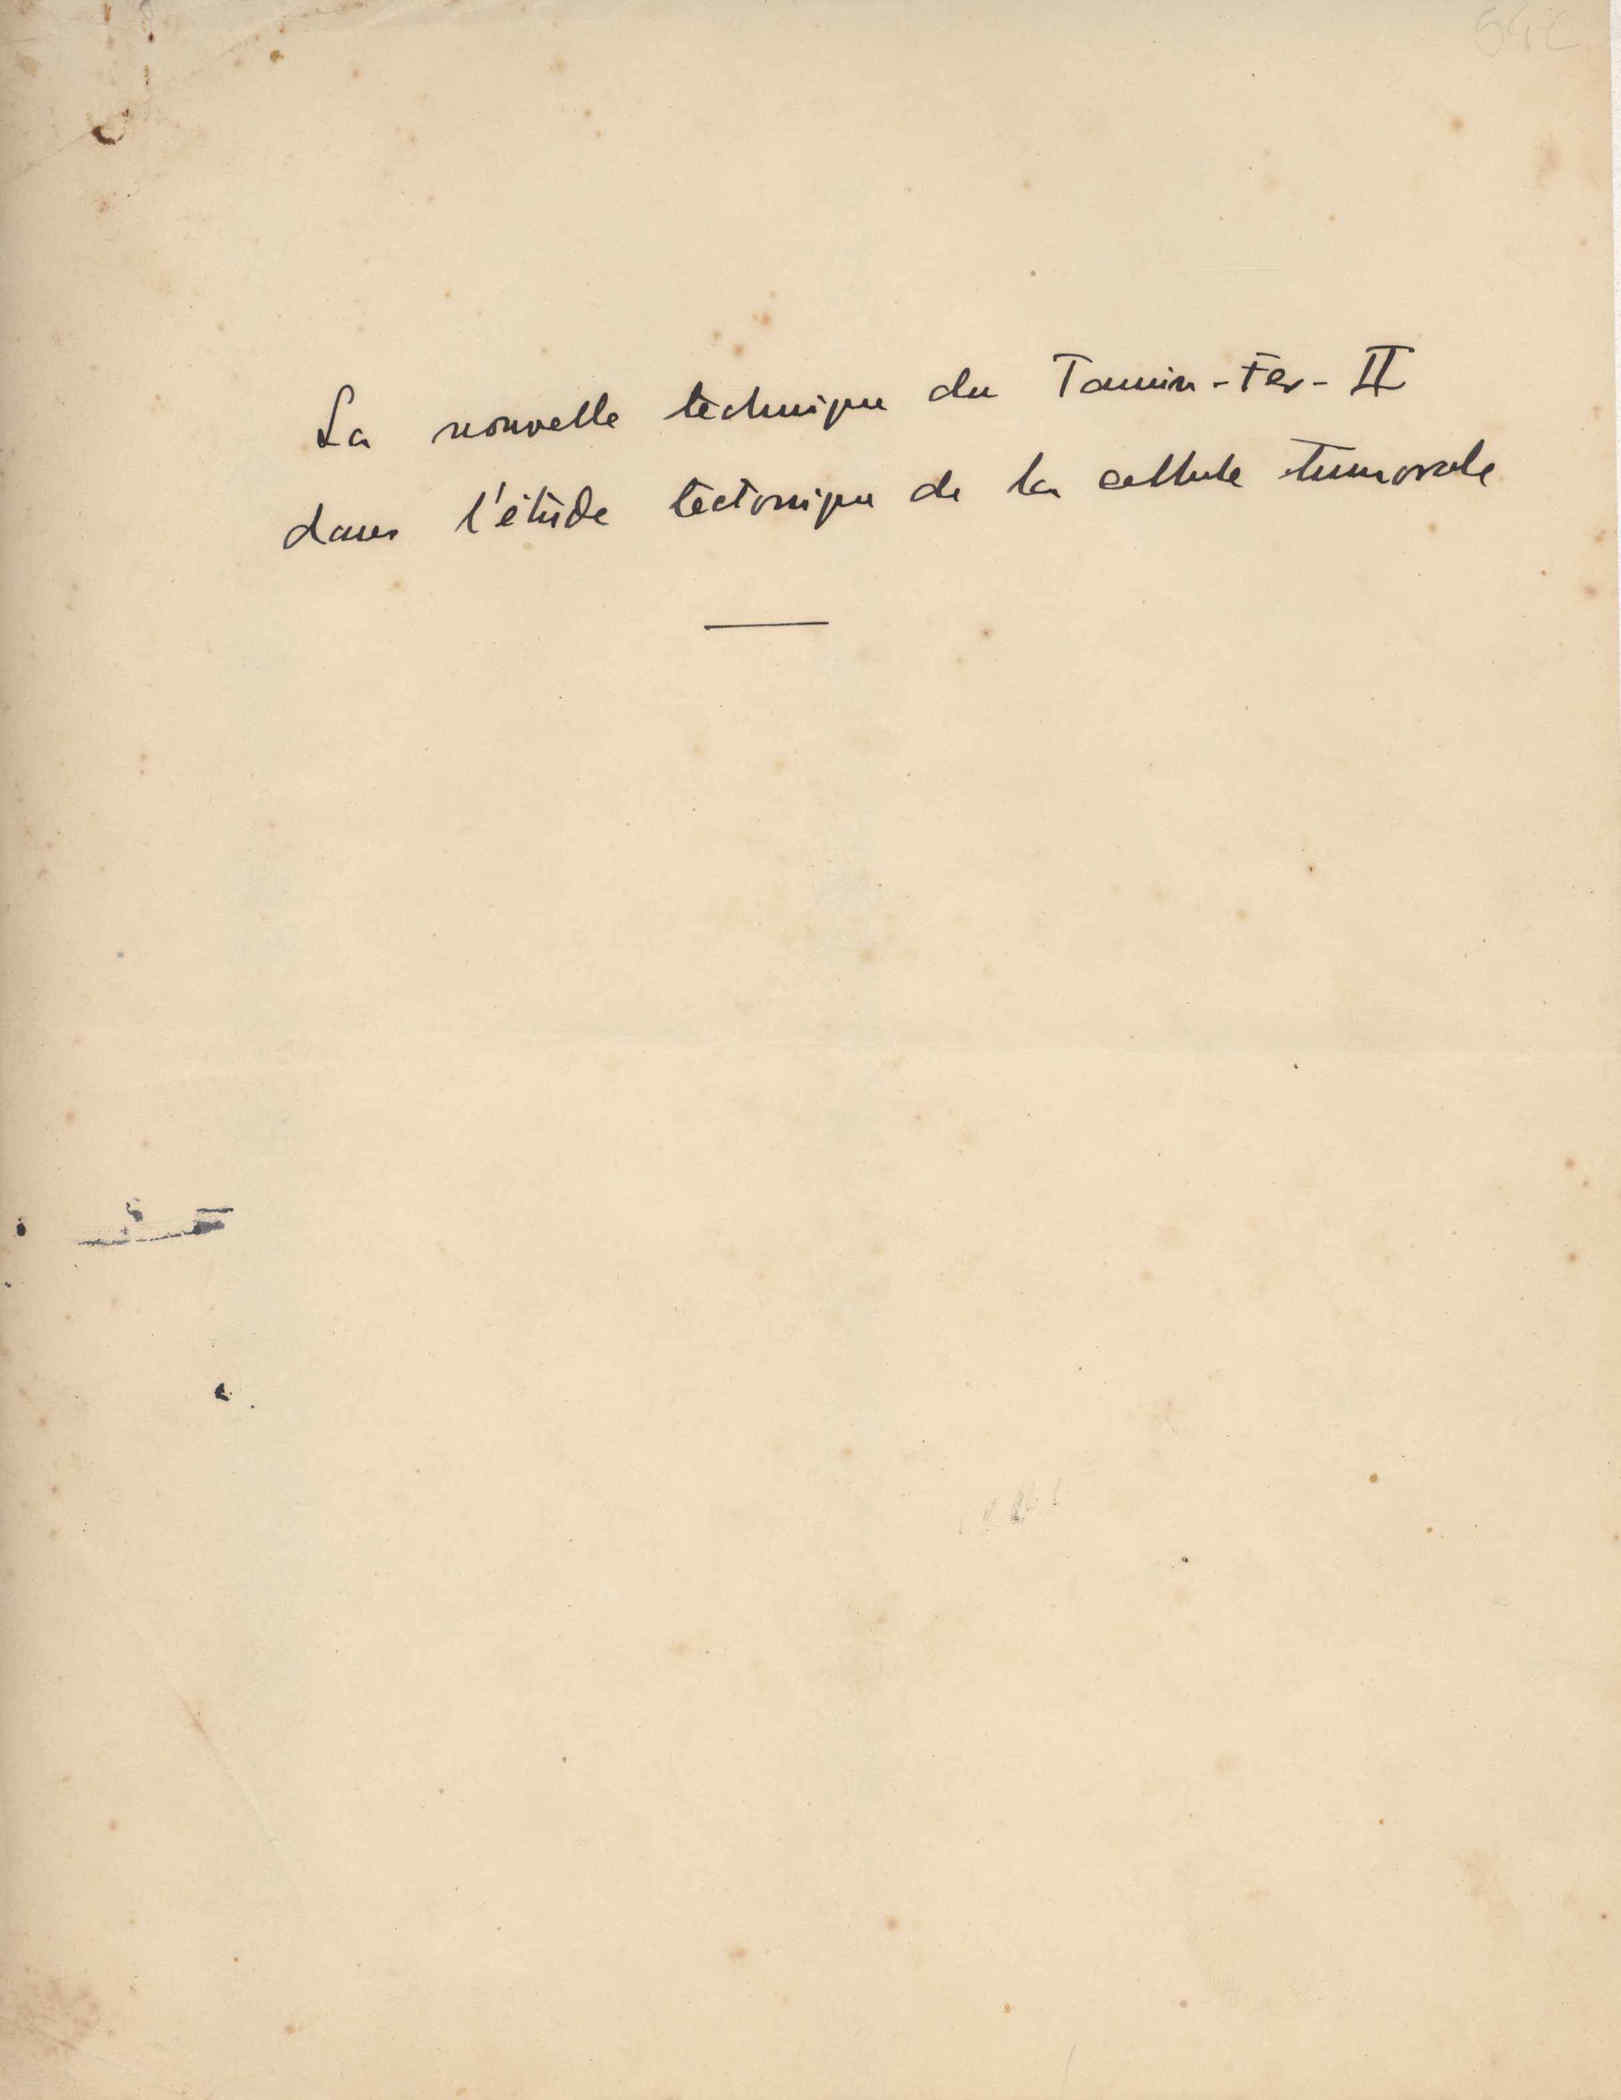 La nouvelle technique du Tannin-Fer-II
dans l'étude tectonique de la cellule tumorale